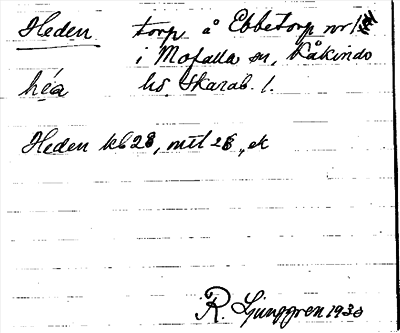 Heden torp å Ebbetorp nr 1
i Mofalla sn, Kåkinds
héa hd. Skarab. l.
Heden kb 28, mtl 28, ek
R. Ljunggren 1930